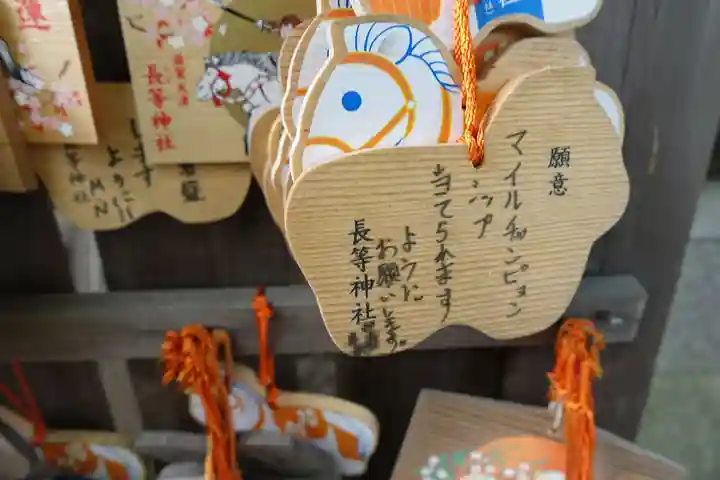 願意
マイルチャンピョン
シップ
当てられます
ように
お願いします。
長等神社
長等神社
ように
M.N